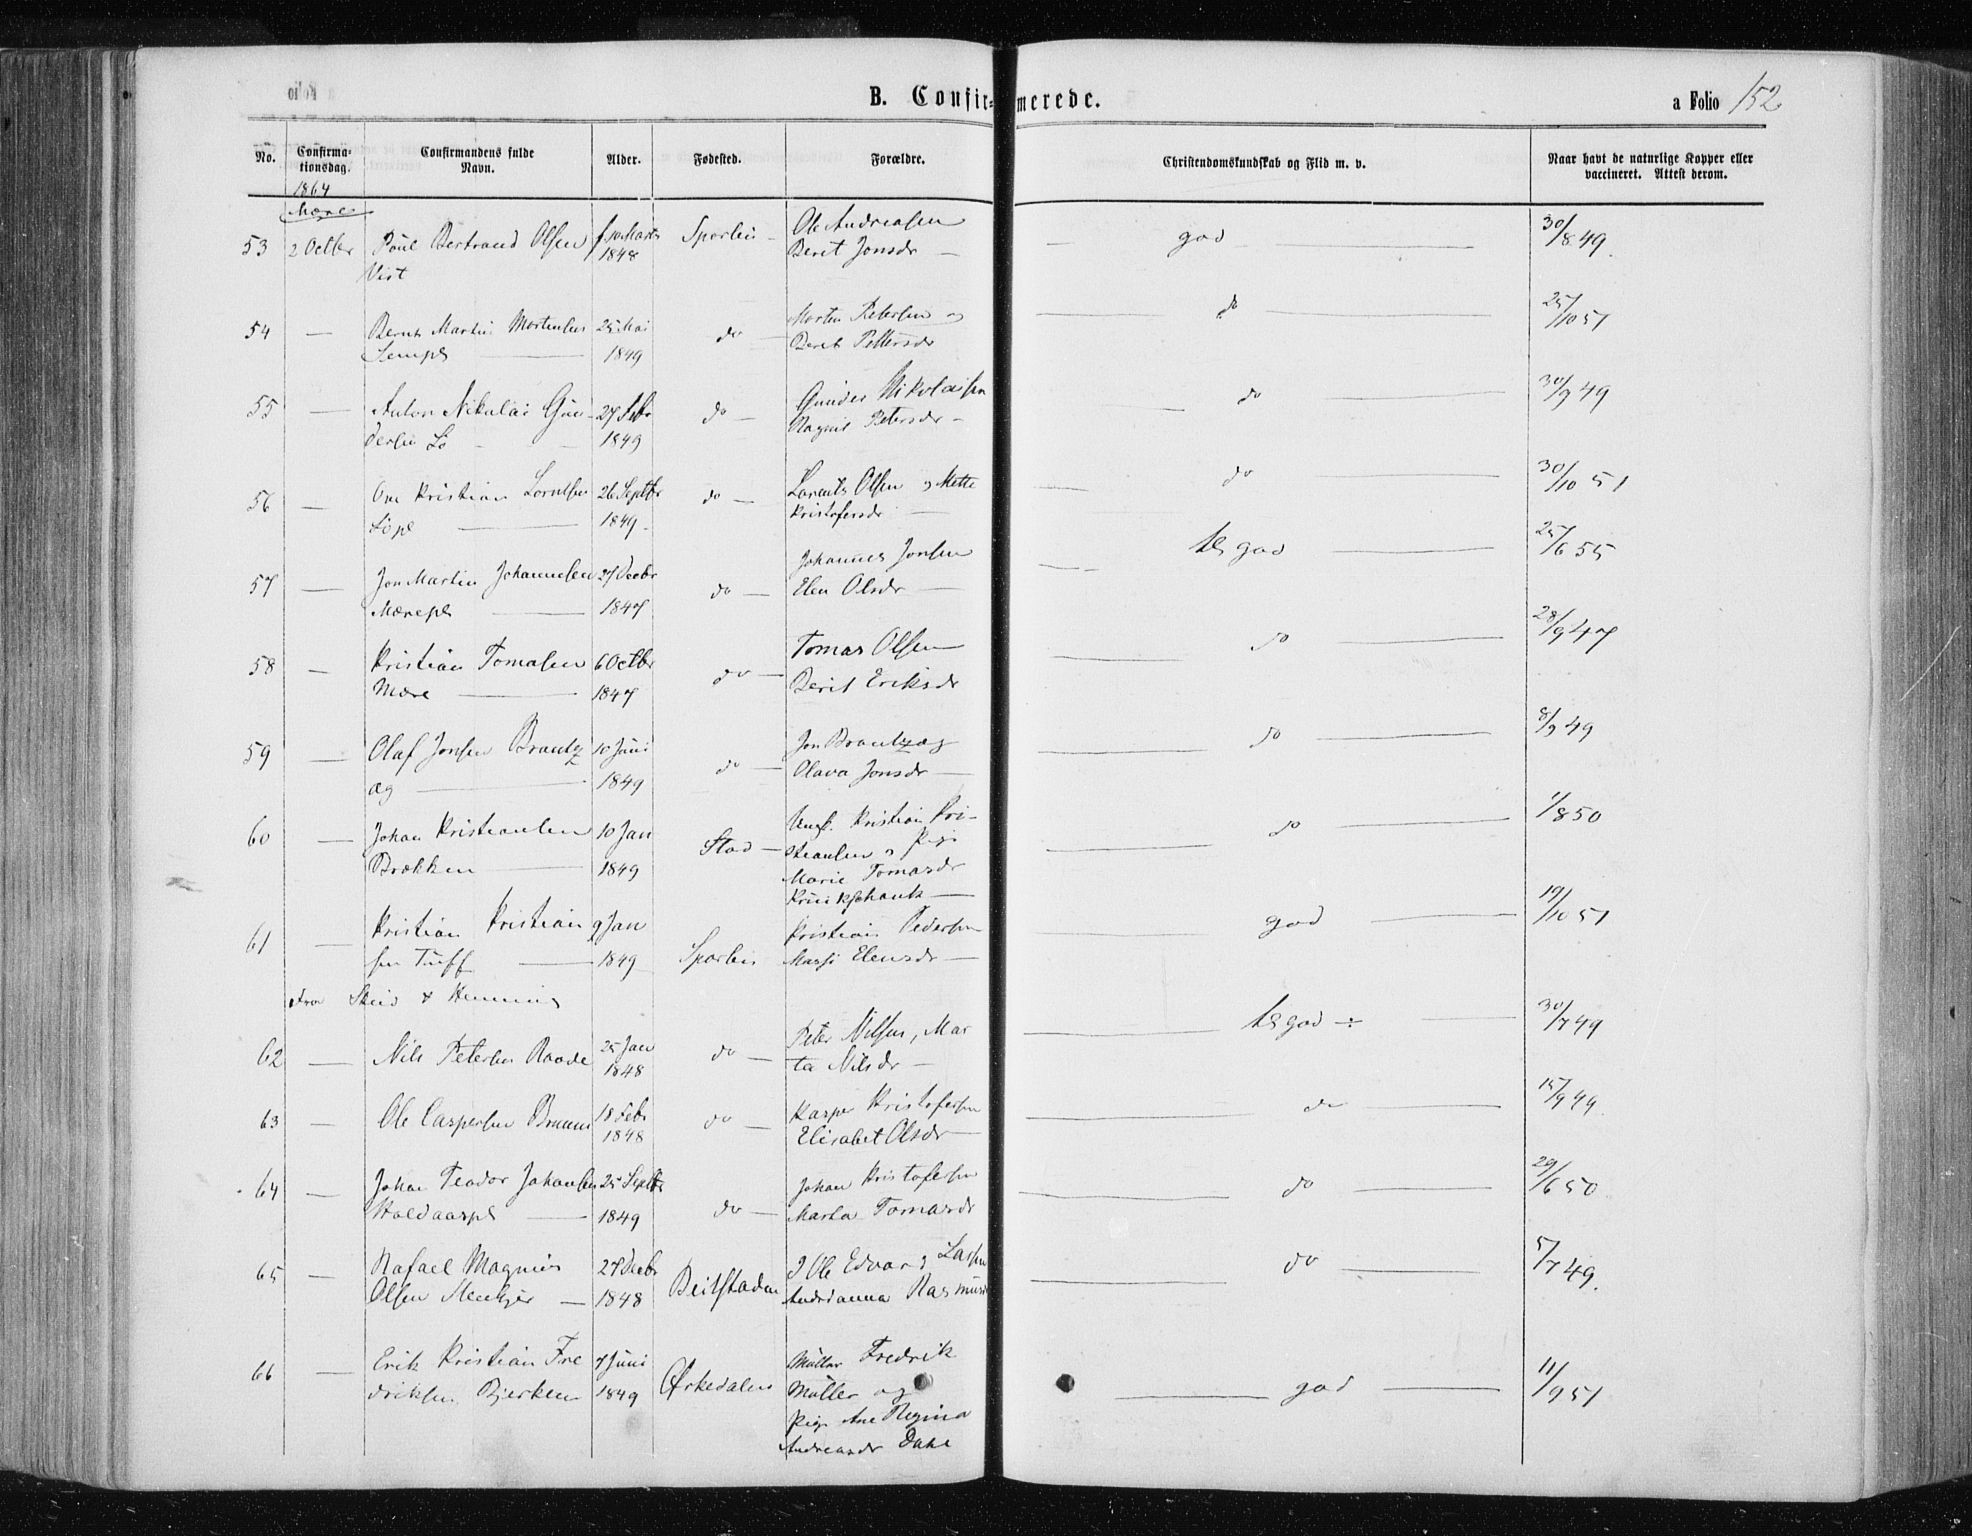 B. Confirmerede.
a Folio 152
No.
Confirmationsdag.
Confirmandens fulde Navn.
Alder.
Fødested.
Forældre.
Christendomskundskab og Flid m. v.
Naar havt de naturlige Kopper eller vaccineret. Attest derom.
1864
Mære
53 2 Octbr Poul Bertrand Olsen f. 10 Marts Sparbu Ole Andreasen god 30/8 49.
Vist 1848 Berit Jonsdr
54 — Bernt Martin Mortensen 25 Mai do Morten Petersen og do 25/10 51
Sempl 1849 Berit Pettersdr
55 — Anton Nikolai Gun- 27 Feb do Gunder Nikolaisen do 30/9 49
dersen Lø 1849 Ragnil Petersdr
56 — Ove Kristian Lorntsen 26 Septbr do Lorents Olsen og Mette do 30/10 51
Løpl 1849 Kristofersdr
57 — Jon Martin Johannesen 27 Decbr do Johannes Jonsen tlgod 25/6 55
Mærepl 1847 Elen Olsdr
58 — Kristian Tomasen 6 Octbr do Tomas Olsen do 28/9 47
Mære 1847 Berit Eriksdr
59 — Olaf Jonsen Brandtz 10 Juni do Jon Brandtzæg do 8/9 49
æg 1849 Olava Jonsdr
60 — Johan Kristiansen 10 Jan Stod Ungk. Kristian Kri- do 1/8 50
Brækken 1849 stiansen og Pige
Marie Tomasdr
61 — Kristian Kristian 9 Jan Sparbu Kristian Pedersen god 19/10 51
sen Tuff 1849 Massi Elensdr
Fra Skeid & Henning
62 — Nils Petersen Raade 25 Jan do Peter Nilsen, Mar tlgod ÷ 30/7 49
1848 ta Nilsdr
63 — Ole Caspersen Bruem 18 Feb do Kasper Kristofersen do 15/9 49
1848 Elisabet Olsdr
64 — Johan Teodor Johansen 25 Septbr do Johan Kristofersen do 29/6 50
1849 Marta Tomasdr
65 — Rafael Magnus 27 Decbr Beitstaden Ole Edvard Larsen do 5/7 49.
Olsen Stenkjer 1848 Andrianna Rasmusd
66 — Erik Kristian Fre 7 Juni Ørkedalen Møller Fredrik god 11/9 51
driksen Bjerkem 1849 Møller og
Pige Ane Regina
Andreasdr Dahl